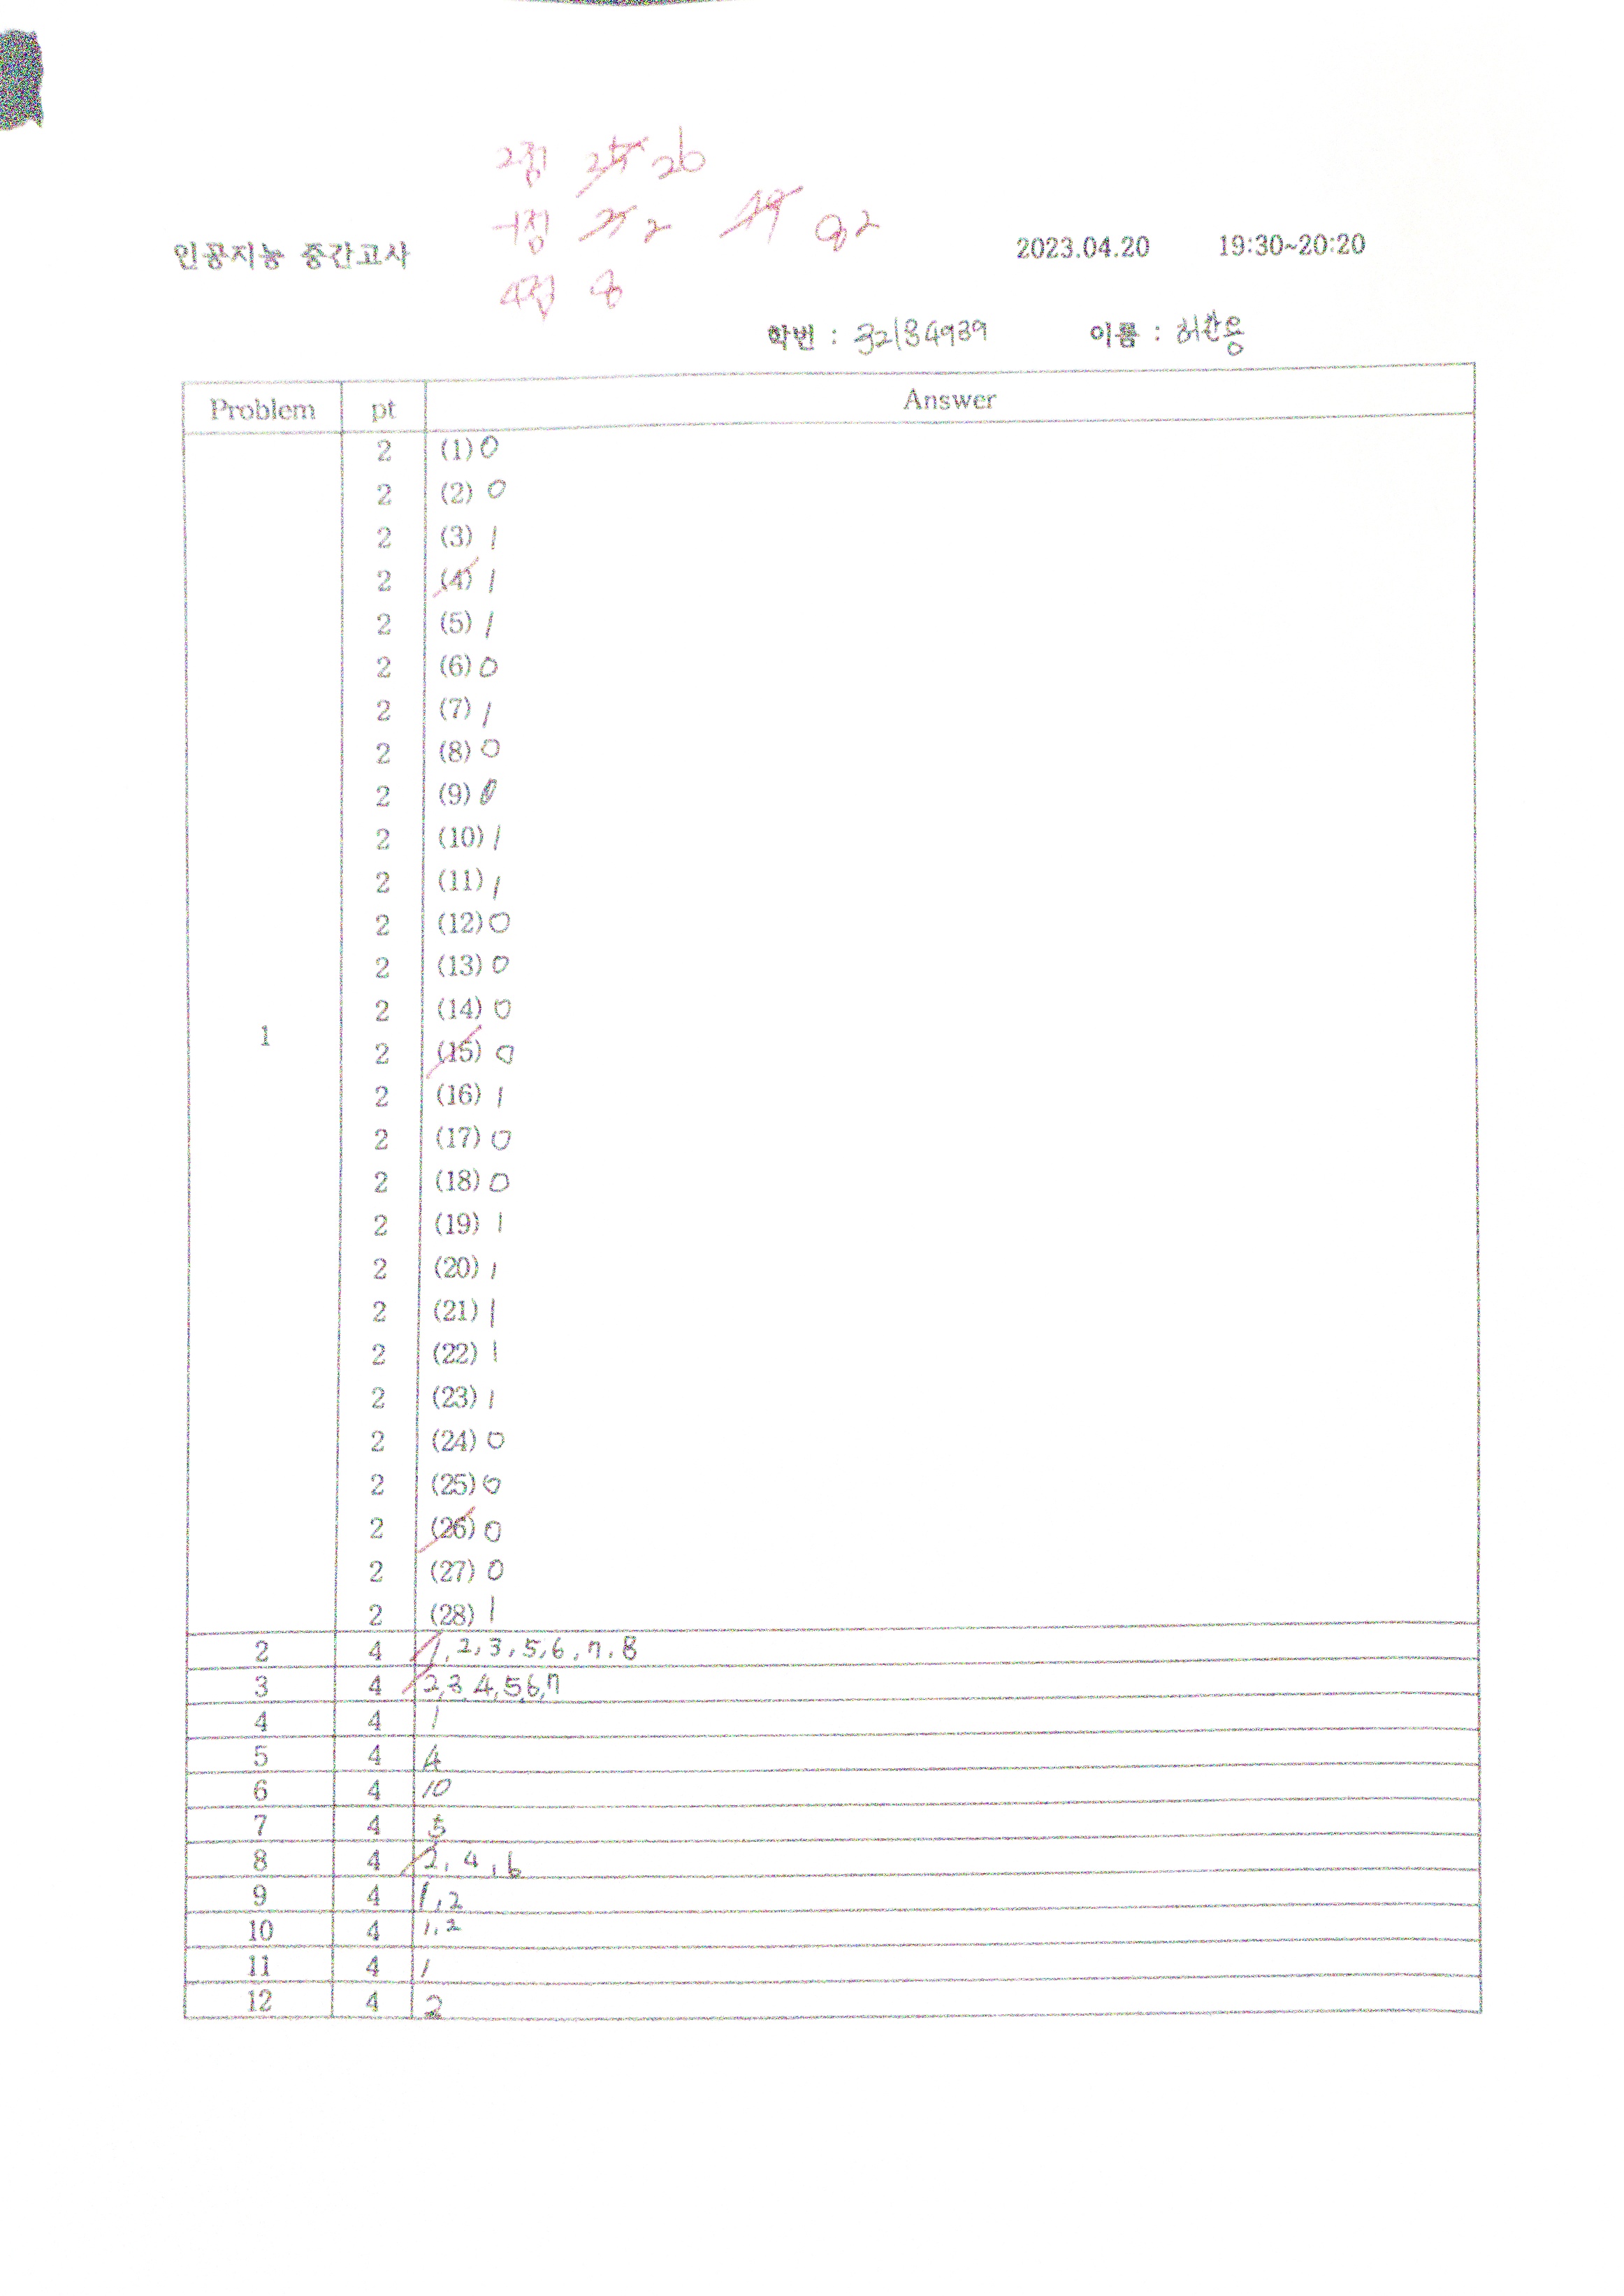 2점 25 26
-1점 25 2 92
4점 8
인공지능 중간고사 2023.04.20 19:30~20:20
학번 : 32184939 이름 : 허찬용
Problem pt Answer
2 (1) 0
2 (2) 0
2 (3) 1
2 (4) 1
2 (5) 1
2 (6) 0
2 (7) 1
2 (8) 0
2 (9) 0
2 (10) 1
2 (11) 1
2 (12) 0
2 (13) 0
2 (14) 0
1 2 (15) 0
2 (16) 1
2 (17) 0
2 (18) 0
2 (19) 1
2 (20) 1
2 (21) 1
2 (22) 1
2 (23) 1
2 (24) 0
2 (25) 0
2 (26) 0
2 (27) 0
2 (28) 1
2 4 1, 2, 3, 5, 6, 7, 8
3 4 2,3 4,5,6,7
4 4 1
5 4 4
6 4 10
7 4 5
8 4 2, 4, 6
9 4 1, 2
10 4 1, 2
11 4 1
12 4 2